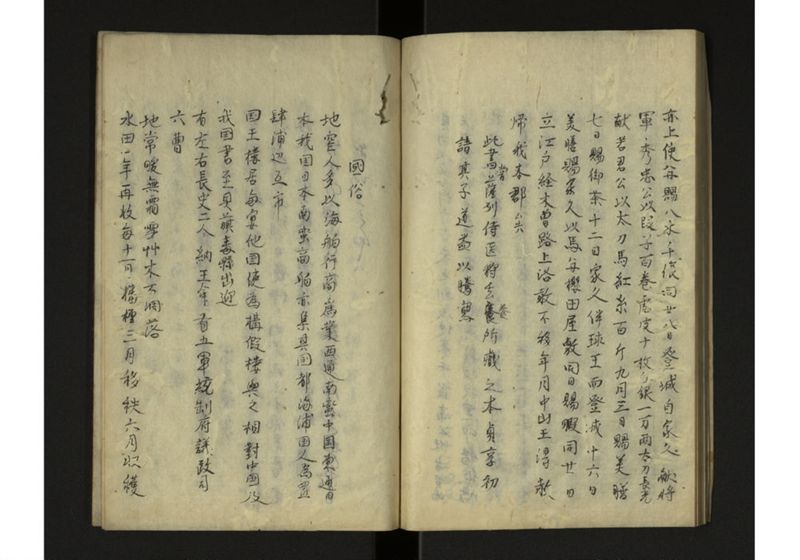 亦上使毎賜八木千俵同廿八日登城自家久献将
軍秀忠公以段子百巻虎皮十枚銀一万両太刀長光
献若君公以太刀馬紅糸百斤九月三日賜美膳
七日賜御茶十二日家久伴球王而登城十六日
美膳賜家久以馬毎桜田屋敷同日賜暇同廿日
立江戸経木曽路上洛敢不移年月中山王得赦
帰我本郡云云
此書薩列侍医 所蔵之本貞享初
請其子道益以謄写
国俗
地窄人多以海舶行商為業西通南蛮中国東通日
本我国日本南蛮商舶亦集其国都海浦国人為置
肆浦辺互市
国王楼居毎宴他国使為搆仮楼与之相対中国及
我国書至具旗纛郊出迎
有左右長史二人出納王命有五軍統制府議政司
六曹
地常暖無霜雪艸木不凋落
水田一年再收毎十一月播種三月移秧六月収穫